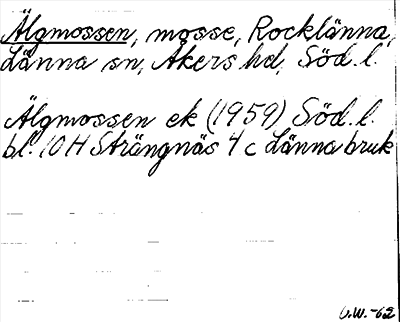 Älgmossen, mosse, Rocklänna,
Länna sn, Åkers hd, Söd. l.
Älgmossen ek (1959) Söd. l.
bl. 10 H Strängnäs 4 c Länna bruk
G.W.-62